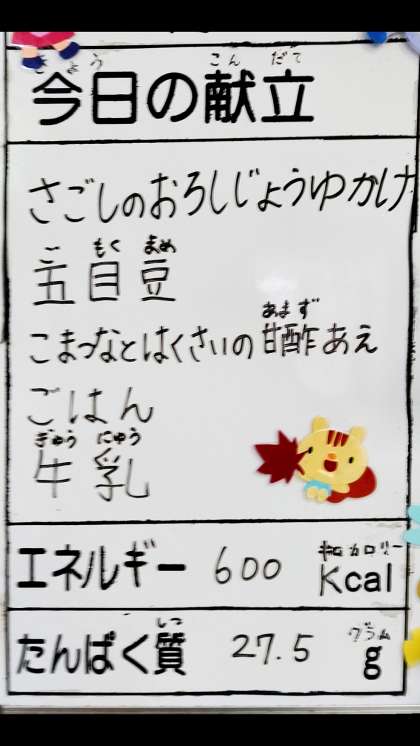 きょう こんだて
今日の献立
さごしのおろしじょうゆかけ
ご もく まめ
五目豆
あまず
こまつなとはくさいの甘酢あえ
ごはん
ぎゅう にゅう
牛乳
キロカロリー
エネルギー 600 Kcal
しつ グラム
たんぱく質 27.5 g